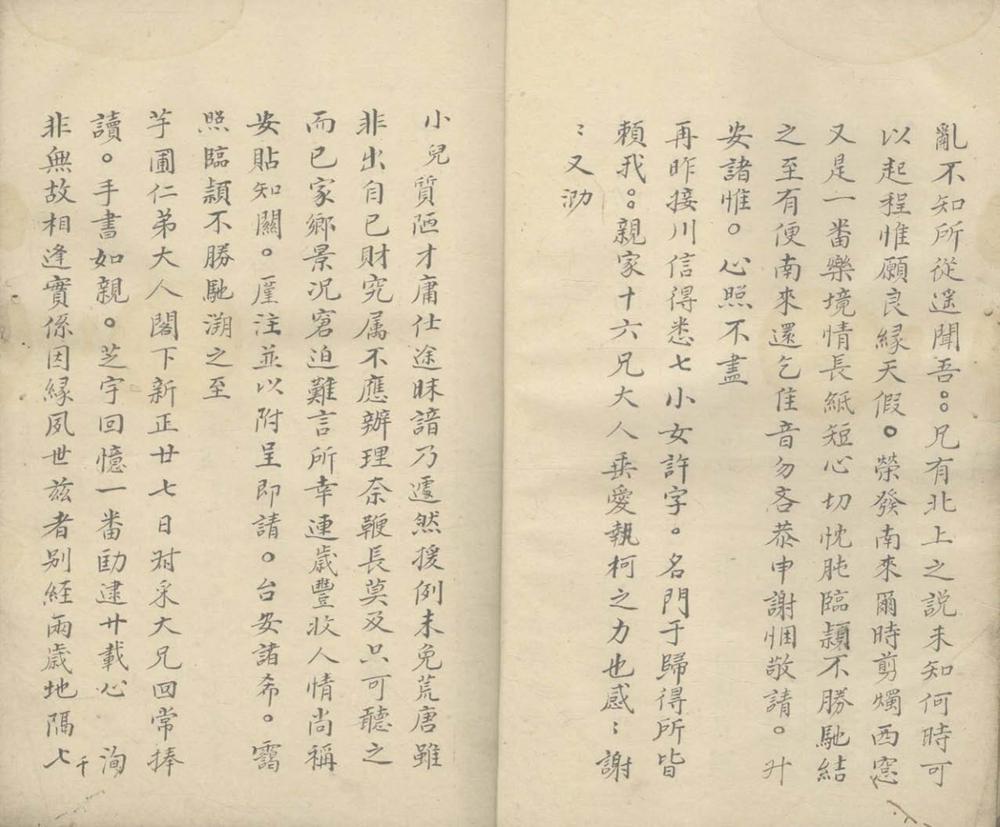 亂不知所從遥聞吾○○兄有北上之説未知何時可
以起程惟願良緣天假○榮發南來爾時剪燭西窓
又是一畨樂境情長紙短心切忱肫臨穎不勝馳結
之至有便南來還乞隹音勿吝恭申謝悃敬請○升
安諸惟○心照不盡
再昨接川信得悉七小女許字○名門于歸得所皆
賴我○○親家十六兄大人垂愛執柯之力也感:謝
:又泐
小兒質陋才庸仕途昧諳乃遽然援例未免荒唐雖
非出自己財究属不應辦理奈鞭長莫及只可聽之
而已家鄉景況窘迫難言所幸連歲豐收人情尚稱
安貼知關○廑注並以附呈即請○台安諸希○靄
照臨穎不勝馳溯之至
芋圃仁弟大人閣下新正廿七日対采大兄回常捧
讀○手書如親○芝宇回憶一畨逮廿載心洵
非無故相逢實係因緣夙世兹者别經兩歲地隔七千